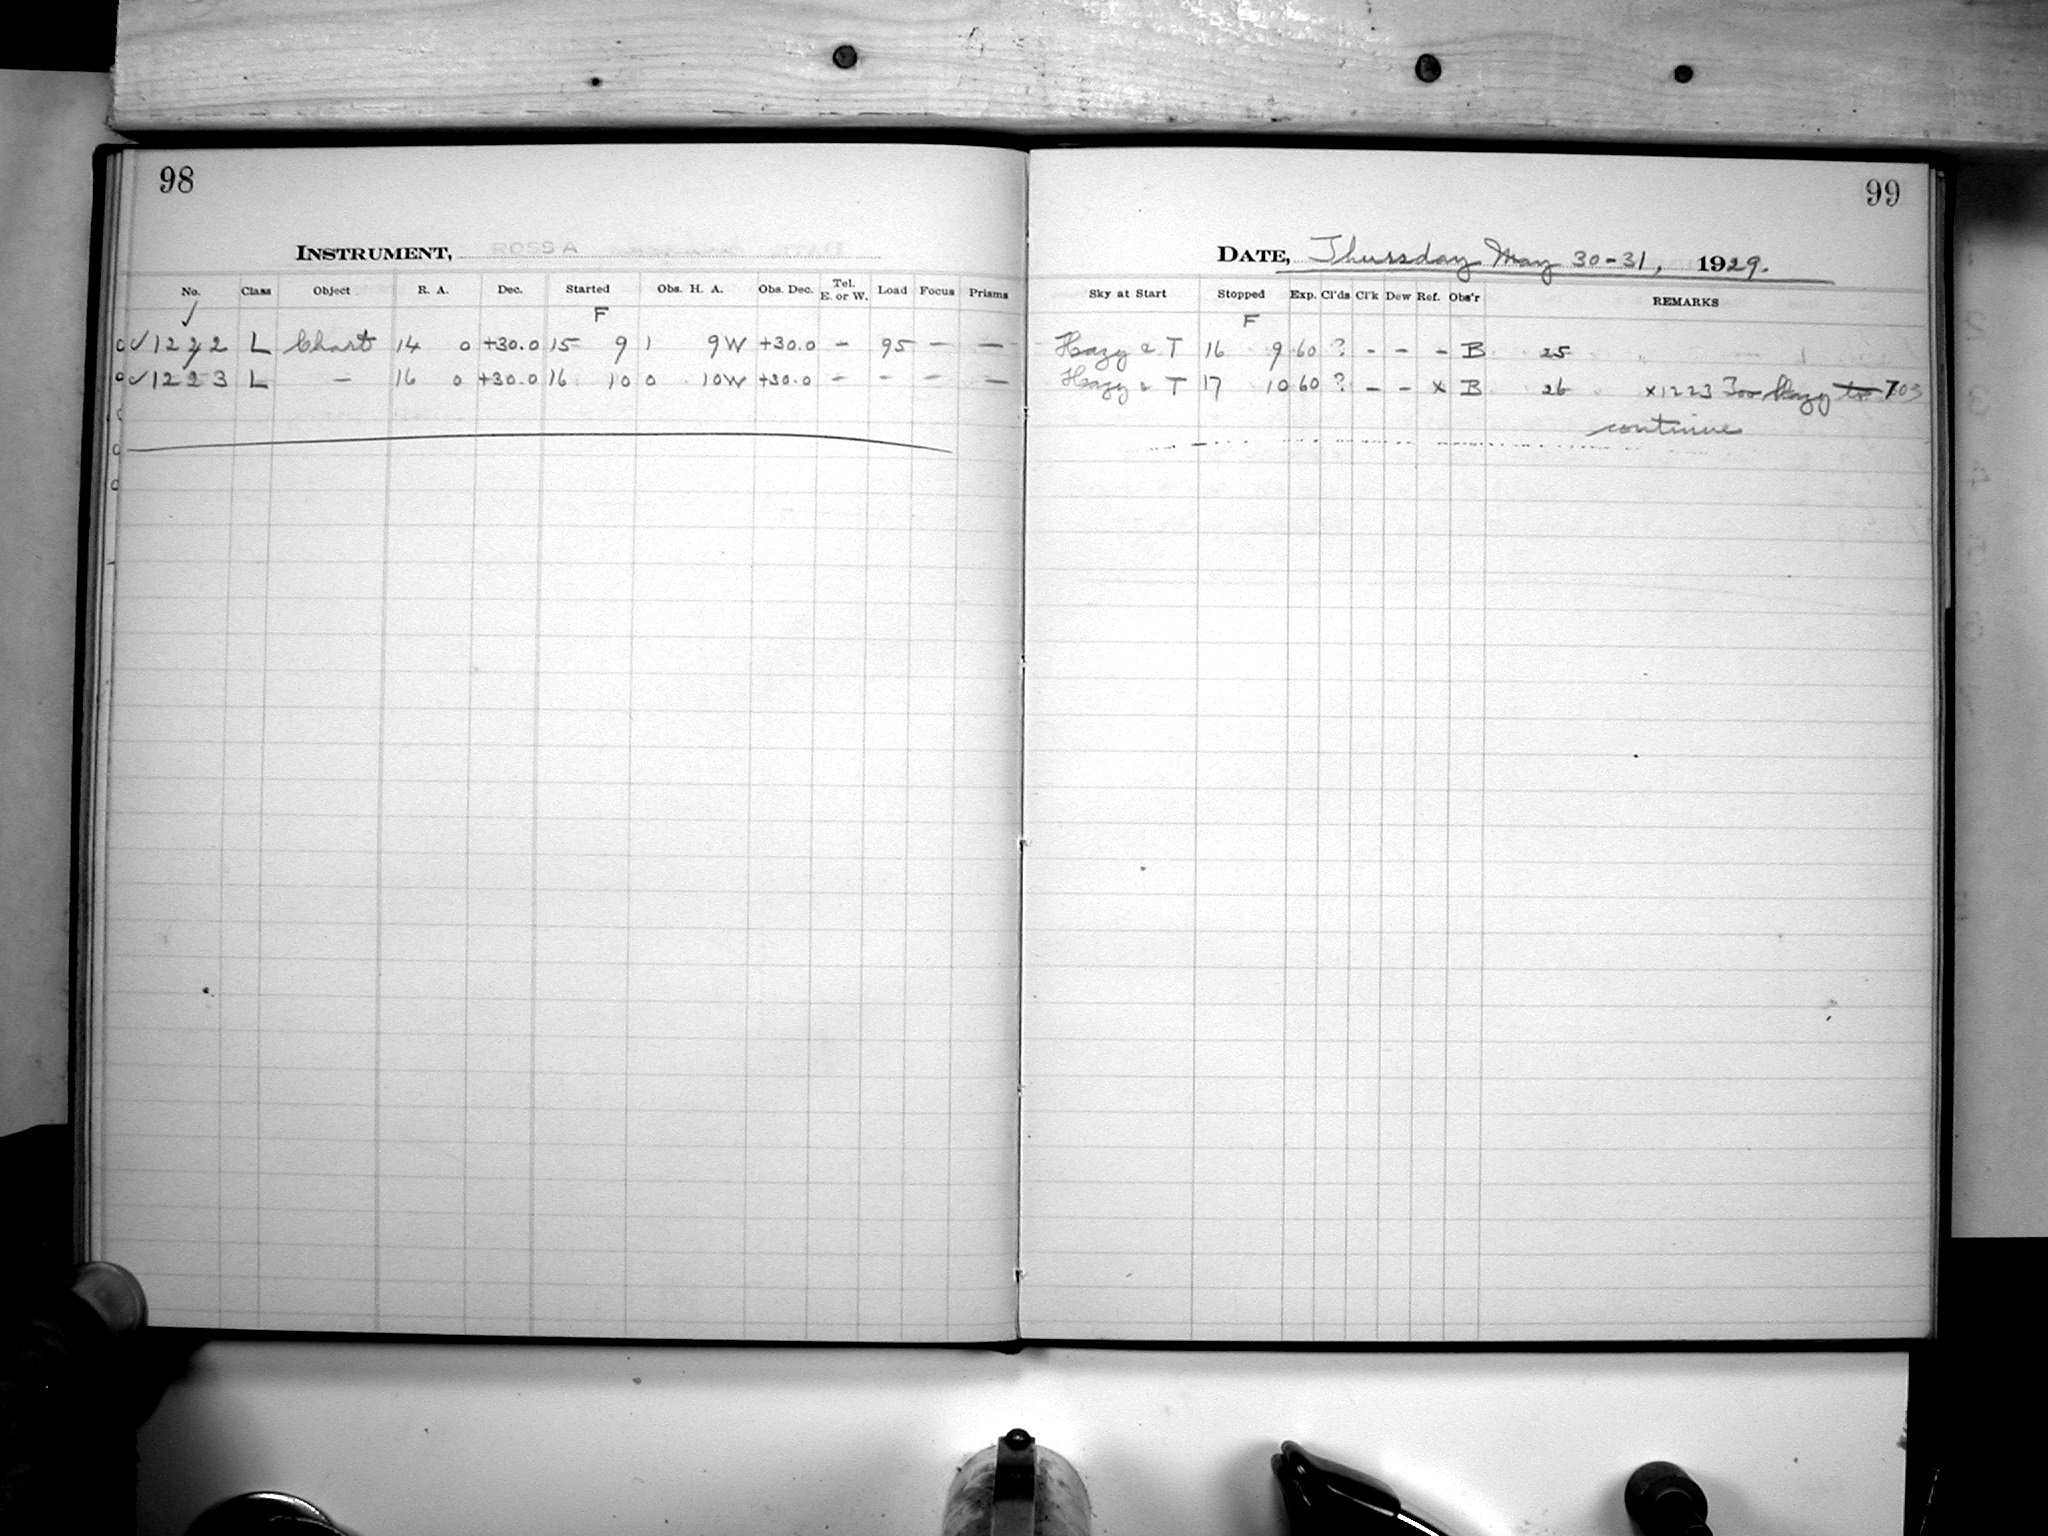 98
INSTRUMENT, ROSS A
No. Class Object R. A. Dec. Started Obs. H. A. Obs. Dec. Tel. E. or W. Load Focus Prisms
✓ F
✓1222 L Chart 14 0 +30.0 15 9 1 9W +30.0 - 95 - -
✓1223 L - 16 0 +30.0 16 10 0 10W +30.0 - - - -
99
DATE, Thursday May 30-31, 1929.
Sky at Start Stopped Exp. Cl'ds Cl'k Dew Ref. Obs'r REMARKS
F
Hazy & T 16 9 60 ? - - - B 25
Hazy & T 17 10 60 ? - - x B 26 x1223 Too Hazy to 703
continue